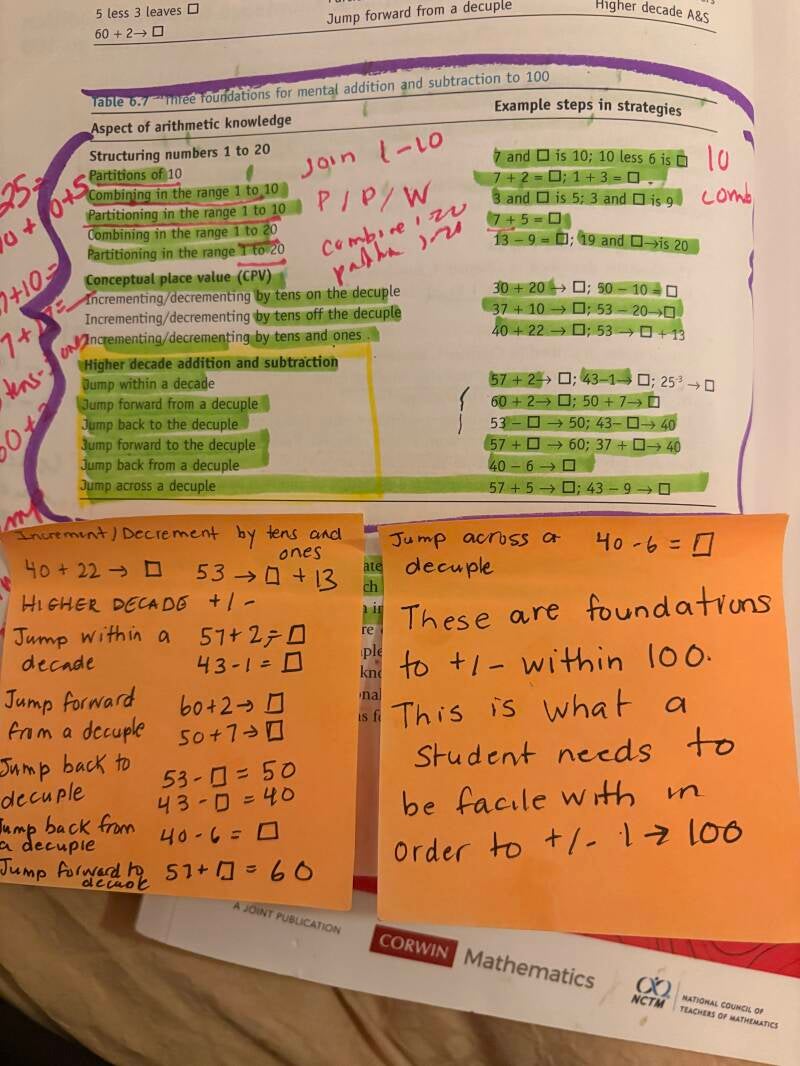 5 less 3 leaves □
60 + 2→ □
Jump forward from a decuple
Higher decade A&S
Table 6.7 Three foundations for mental addition and subtraction to 100
Aspect of arithmetic knowledge
Example steps in strategies
Structuring numbers 1 to 20
Partitions of 10
7 and □ is 10; 10 less 6 is □
Combining in the range 1 to 10
7 + 2 = □; 1 + 3 = □
Partitioning in the range 1 to 10
3 and □ is 5; 3 and □ is 9
Combining in the range 1 to 20
7 + 5 = □
Partitioning in the range 1 to 20
13 − 9 = □; 19 and □→is 20
Join 1-10
P / P / W
10
comb
Conceptual place value (CPV)
Incrementing/decrementing by tens on the decuple
30 + 20 → □; 50 − 10 = □
Incrementing/decrementing by tens off the decuple
37 + 10 → □; 53 − 20→□
Incrementing/decrementing by tens and ones
40 + 22 → □; 53 → □ + 13
Higher decade addition and subtraction
Jump within a decade
57 + 2→ □; 43−1→ □; 25⁻³ → □
Jump forward from a decuple
60 + 2→ □; 50 + 7→ □
Jump back to the decuple
53 − □ → 50; 43− □→ 40
Jump forward to the decuple
57 + □ → 60; 37 + □→ 40
Jump back from a decuple
40 − 6 → □
Jump across a decuple
57 + 5 → □; 43 − 9 → □
25=
Increment/Decrement by tens and
ones
40 + 22 → □ 53 → □ + 13
HIGHER DECADE +/-
Jump within a 57+2=□
decade 43-1 = □
Jump forward 60+2→ □
from a decuple 50+7→□
Jump back to 53-□ = 50
decuple 43-□ = 40
Jump back from 40-6 = □
a decuple
Jump forward to 57+□ = 60
Jump across a 40-6 = □
decuple
These are foundations
to +/- within 100.
This is what a
student needs to
be facile with in
order to +/- 1→100
A JOINT PUBLICATION
CORWIN Mathematics
NCTM
NATIONAL COUNCIL OF
TEACHERS OF MATHEMATICS